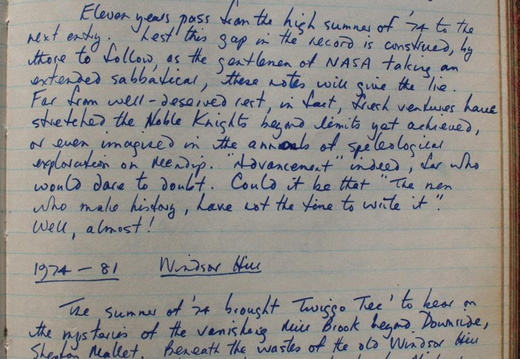 Eleven years pass from the high summer of '74 to the
next entry. Lest this gap in the record is construed, by
those to follow, as the gentlemen of NASA taking an
extended sabbatical, these notes will give the lie.
Far from well-deserved rest, in fact, fresh ventures have
stretched the Noble Knights beyond limits yet achieved,
or even imagined in the annals of speleological
exploration on Mendip. "Advancement" indeed, for who
would dare to doubt. Could it be that "The men
who make history, have not the time to write it".
Well, almost!
1974 - 81 Windsor Hill
The summer of '74 brought 'Twiggo Tree' to bear on
the mysteries of the vanishing Brook beyond Downside,
Shepton Mallet. Beneath the wastes of the old Windsor Hill